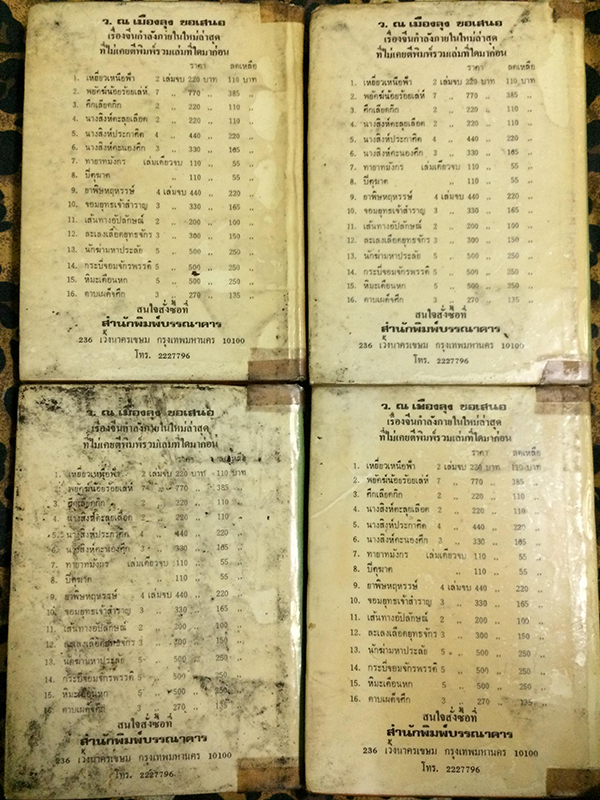 ว. ณ เมืองลุง ขอเสนอ
เรื่องจีนกำลังภายในใหม่ล่าสุด
ที่ไม่เคยตีพิมพ์รวมเล่มที่ใดมาก่อน
ราคา ลดเหลือ
1. เหยี่ยวเหนือฟ้า 2 เล่มจบ 220 บาท 110 บาท
2. พยัคฆ์น้อยร้อยเล่ห์ 7 ,, 770 ,, 385 ,,
3. 2 ,, 220 ,, 110 ,,
4. นางสิงห์ตะลุยเลือด 2 ,, 220 ,, 110 ,,
5. นางสิงห์ประกาศิต 4 ,, 440 ,, 220 ,,
6. นางสิงห์คะนองศึก 3 ,, 330 ,, 165 ,,
7. ทายาทมังกร เล่มเดียวจบ 110 ,, 55 ,,
8. ปิตุฆาต ,, 110 ,, 55 ,,
9. ยาพิษหฤหรรษ์ 4 เล่มจบ 440 ,, 220 ,,
10. จอมยุทธเจ้าสำราญ 3 ,, 330 ,, 165 ,,
11. เส้นทางอัปลักษณ์ 2 ,, 200 ,, 100 ,,
12. ละเลงเลือดยุทธจักร 3 ,, 300 ,, 150 ,,
13. นักฆ่ามหาประลัย 5 ,, 500 ,, 250 ,,
14. กระบี่จอมจักรพรรดิ 5 ,, 500 ,, 250 ,,
15. หิมะเดือนหก 5 ,, 500 ,, 250 ,,
16. ดาบเผด็จศึก 3 ,, 270 ,, 135 ,,
สนใจสั่งซื้อที่
สำนักพิมพ์บรรณาคาร
236 เวิ้งนาครเขษม กรุงเทพมหานคร 10100
โทร. 2227796
ว. ณ เมืองลุง ขอเสนอ
เรื่องจีนกำลังภายในใหม่ล่าสุด
ที่ไม่เคยตีพิมพ์รวมเล่มที่ใดมาก่อน
ราคา ลดเหลือ
1. เหยี่ยวเหนือฟ้า 2 เล่มจบ 220 บาท 110 บาท
2. พยัคฆ์น้อยร้อยเล่ห์ 7 ,, 770 ,, 385 ,,
3. 2 ,, 220 ,, 110 ,,
4. นางสิงห์ตะลุยเลือด 2 ,, 220 ,, 110 ,,
5. นางสิงห์ประกาศิต 4 ,, 440 ,, 220 ,,
6. นางสิงห์คะนองศึก 3 ,, 330 ,, 165 ,,
7. ทายาทมังกร เล่มเดียวจบ 110 ,, 55 ,,
8. ปิตุฆาต ,, 110 ,, 55 ,,
9. ยาพิษหฤหรรษ์ 4 เล่มจบ 440 ,, 220 ,,
10. จอมยุทธเจ้าสำราญ 3 ,, 330 ,, 165 ,,
11. เส้นทางอัปลักษณ์ 2 ,, 200 ,, 100 ,,
12. ละเลงเลือดยุทธจักร 3 ,, 300 ,, 150 ,,
13. นักฆ่ามหาประลัย 5 ,, 500 ,, 250 ,,
14. กระบี่จอมจักรพรรดิ 5 ,, 500 ,, 250 ,,
15. หิมะเดือนหก 5 ,, 500 ,, 250 ,,
16. ดาบเผด็จศึก 3 ,, 270 ,, 135 ,,
สนใจสั่งซื้อที่
สำนักพิมพ์บรรณาคาร
236 เวิ้งนาครเขษม กรุงเทพมหานคร 10100
โทร. 2227796
ว. ณ เมืองลุง ขอเสนอ
เรื่องจีนกำลังภายในใหม่ล่าสุด
ที่ไม่เคยตีพิมพ์รวมเล่มที่ใดมาก่อน
ราคา ลดเหลือ
1. เหยี่ยวเหนือฟ้า 2 เล่มจบ 220 บาท 110 บาท
2. พยัคฆ์น้อยร้อยเล่ห์ 7 ,, 770 ,, 385 ,,
3. 2 ,, 220 ,, 110 ,,
4. นางสิงห์ตะลุยเลือด 2 ,, 220 ,, 110 ,,
5. นางสิงห์ประกาศิต 4 ,, 440 ,, 220 ,,
6. นางสิงห์คะนองศึก 3 ,, 330 ,, 165 ,,
7. ทายาทมังกร เล่มเดียวจบ 110 ,, 55 ,,
8. ปิตุฆาต ,, 110 ,, 55 ,,
9. ยาพิษหฤหรรษ์ 4 เล่มจบ 440 ,, 220 ,,
10. จอมยุทธเจ้าสำราญ 3 ,, 330 ,, 165 ,,
11. เส้นทางอัปลักษณ์ 2 ,, 200 ,, 100 ,,
12. ละเลงเลือดยุทธจักร 3 ,, 300 ,, 150 ,,
13. นักฆ่ามหาประลัย 5 ,, 500 ,, 250 ,,
14. กระบี่จอมจักรพรรดิ 5 ,, 500 ,, 250 ,,
15. หิมะเดือนหก 5 ,, 500 ,, 250 ,,
16. ดาบเผด็จศึก 3 ,, 270 ,, 135 ,,
สนใจสั่งซื้อที่
สำนักพิมพ์บรรณาคาร
236 เวิ้งนาครเขษม กรุงเทพมหานคร 10100
โทร. 2227796
ว. ณ เมืองลุง ขอเสนอ
เรื่องจีนกำลังภายในใหม่ล่าสุด
ที่ไม่เคยตีพิมพ์รวมเล่มที่ใดมาก่อน
ราคา ลดเหลือ
1. เหยี่ยวเหนือฟ้า 2 เล่มจบ 220 บาท 110 บาท
2. พยัคฆ์น้อยร้อยเล่ห์ 7 ,, 770 ,, 385 ,,
3. 2 ,, 220 ,, 110 ,,
4. นางสิงห์ตะลุยเลือด 2 ,, 220 ,, 110 ,,
5. นางสิงห์ประกาศิต 4 ,, 440 ,, 220 ,,
6. นางสิงห์คะนองศึก 3 ,, 330 ,, 165 ,,
7. ทายาทมังกร เล่มเดียวจบ 110 ,, 55 ,,
8. ปิตุฆาต ,, 110 ,, 55 ,,
9. ยาพิษหฤหรรษ์ 4 เล่มจบ 440 ,, 220 ,,
10. จอมยุทธเจ้าสำราญ 3 ,, 330 ,, 165 ,,
11. เส้นทางอัปลักษณ์ 2 ,, 200 ,, 100 ,,
12. ละเลงเลือดยุทธจักร 3 ,, 300 ,, 150 ,,
13. นักฆ่ามหาประลัย 5 ,, 500 ,, 250 ,,
14. กระบี่จอมจักรพรรดิ 5 ,, 500 ,, 250 ,,
15. หิมะเดือนหก 5 ,, 500 ,, 250 ,,
16. ดาบเผด็จศึก 3 ,, 270 ,, 135 ,,
สนใจสั่งซื้อที่
สำนักพิมพ์บรรณาคาร
236 เวิ้งนาครเขษม กรุงเทพมหานคร 10100
โทร. 2227796